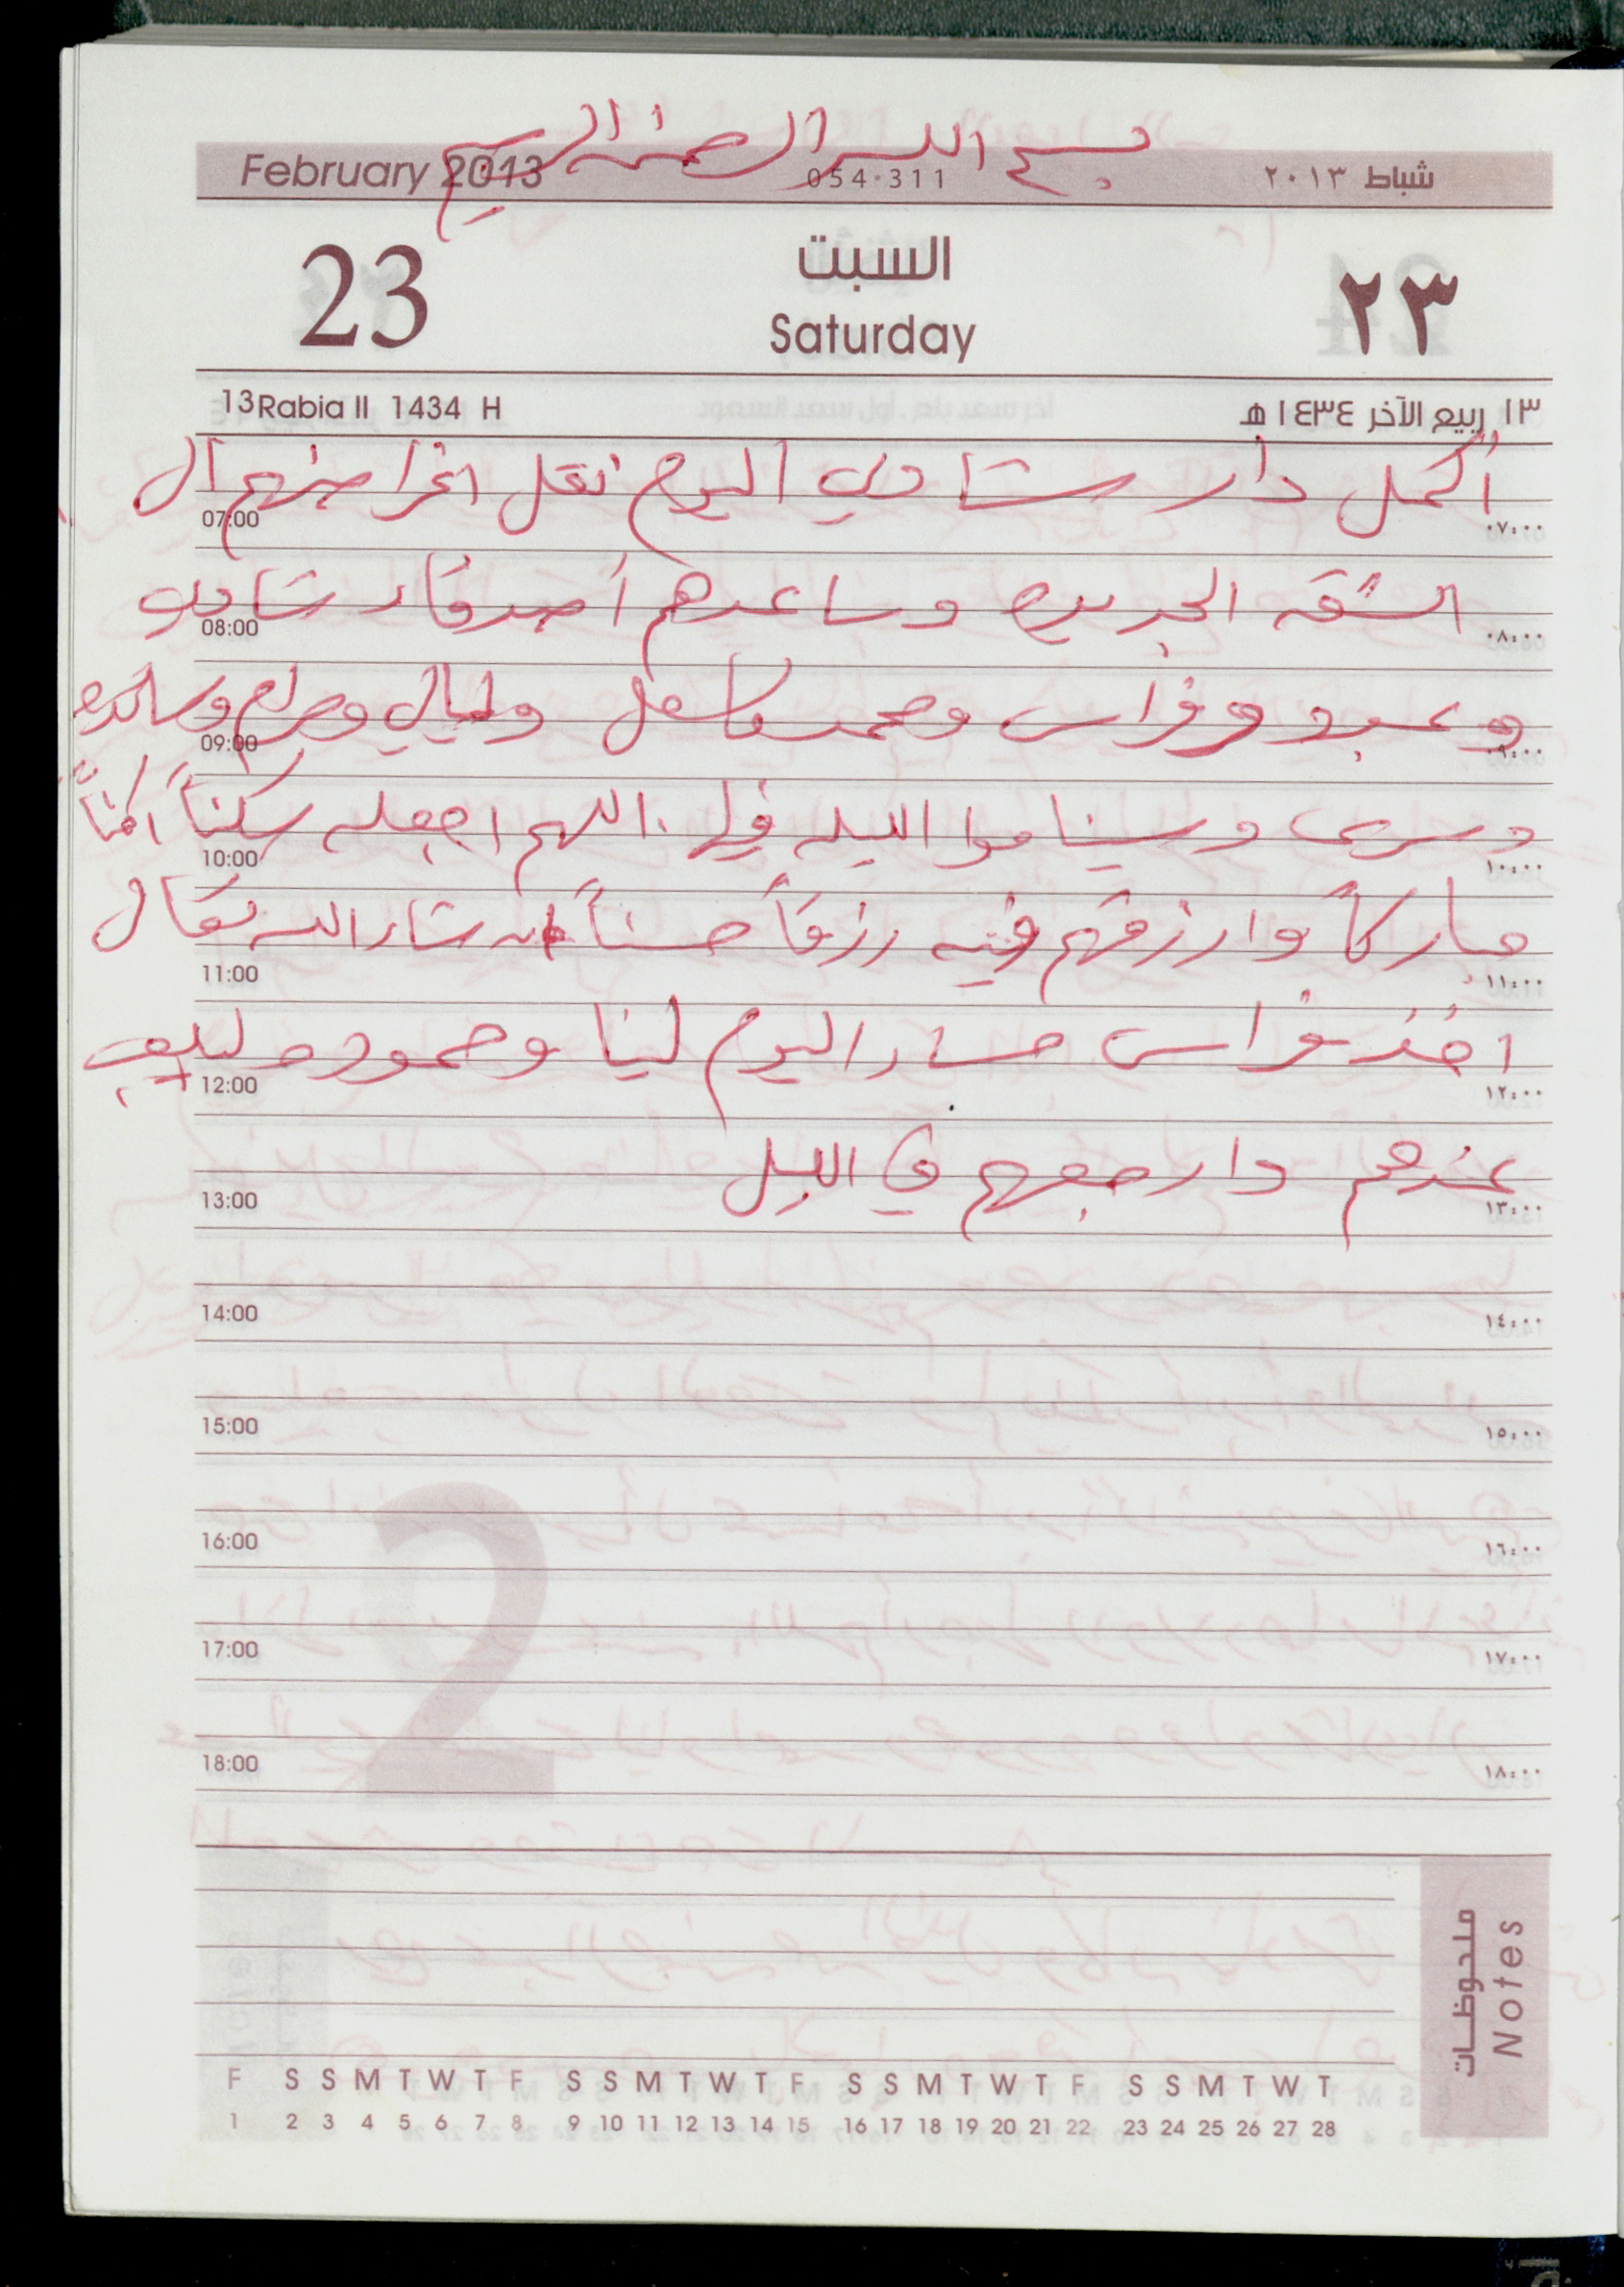 بسم الله الرحمن الرحيم
February 2013 054-311 شباط ٢٠١٣
23 السبت ٢٣
Saturday
13 Rabia II 1434 H ١٣ ربيع الآخر ١٤٣٤ هـ
أكمل دار شادي اليوم نقل اغراضهم الى
07:00 ٠٧:٠٠
الشقه الجديده وساعدهم أصدقاء شادي
08:00 ٠٨:٠٠
وعبود وفراس ومحمد وليالي ومرام وساجده
09:00 ٠٩:٠٠
وسرى وسيناموا الليله فيها. اللهم اجعله سكناً آمناً
10:00 ١٠:٠٠
مباركاً وارزقهم فيه رزقاً حسناً ان شاء الله تعالى
11:00 ١١:٠٠
اخذ فراس مساء اليوم لينا وحمود
12:00 ١٢:٠٠
عندهم وارجعهم في الليل
13:00 ١٣:٠٠
14:00 ١٤:٠٠
15:00 ١٥:٠٠
16:00 ١٦:٠٠
17:00 ١٧:٠٠
18:00 ١٨:٠٠
2
ملحوظات
Notes
F S S M T W T F S S M T W T F S S M T W T F S S M T W T
1 2 3 4 5 6 7 8 9 10 11 12 13 14 15 16 17 18 19 20 21 22 23 24 25 26 27 28